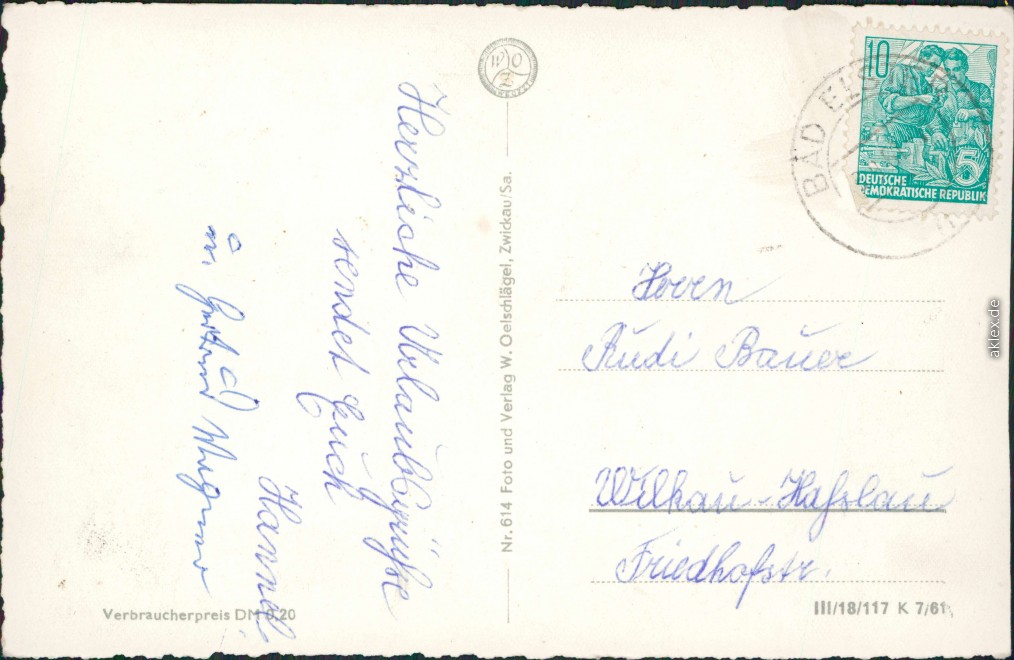 Herzliche Urlaubsgrüße
sendet Euch
Hannel.
u.
Nr. 614 Foto und Verlag W. Oelschlägel, Zwickau/Sa.
Verbraucherpreis DM 0,20
10
5
DEUTSCHE
DEMOKRATISCHE REPUBLIK
BAD
Herrn
Rudi Bauer
Wilkau-Haßlau
Friedhofstr.
III/18/117 K 7/61
aklex.de